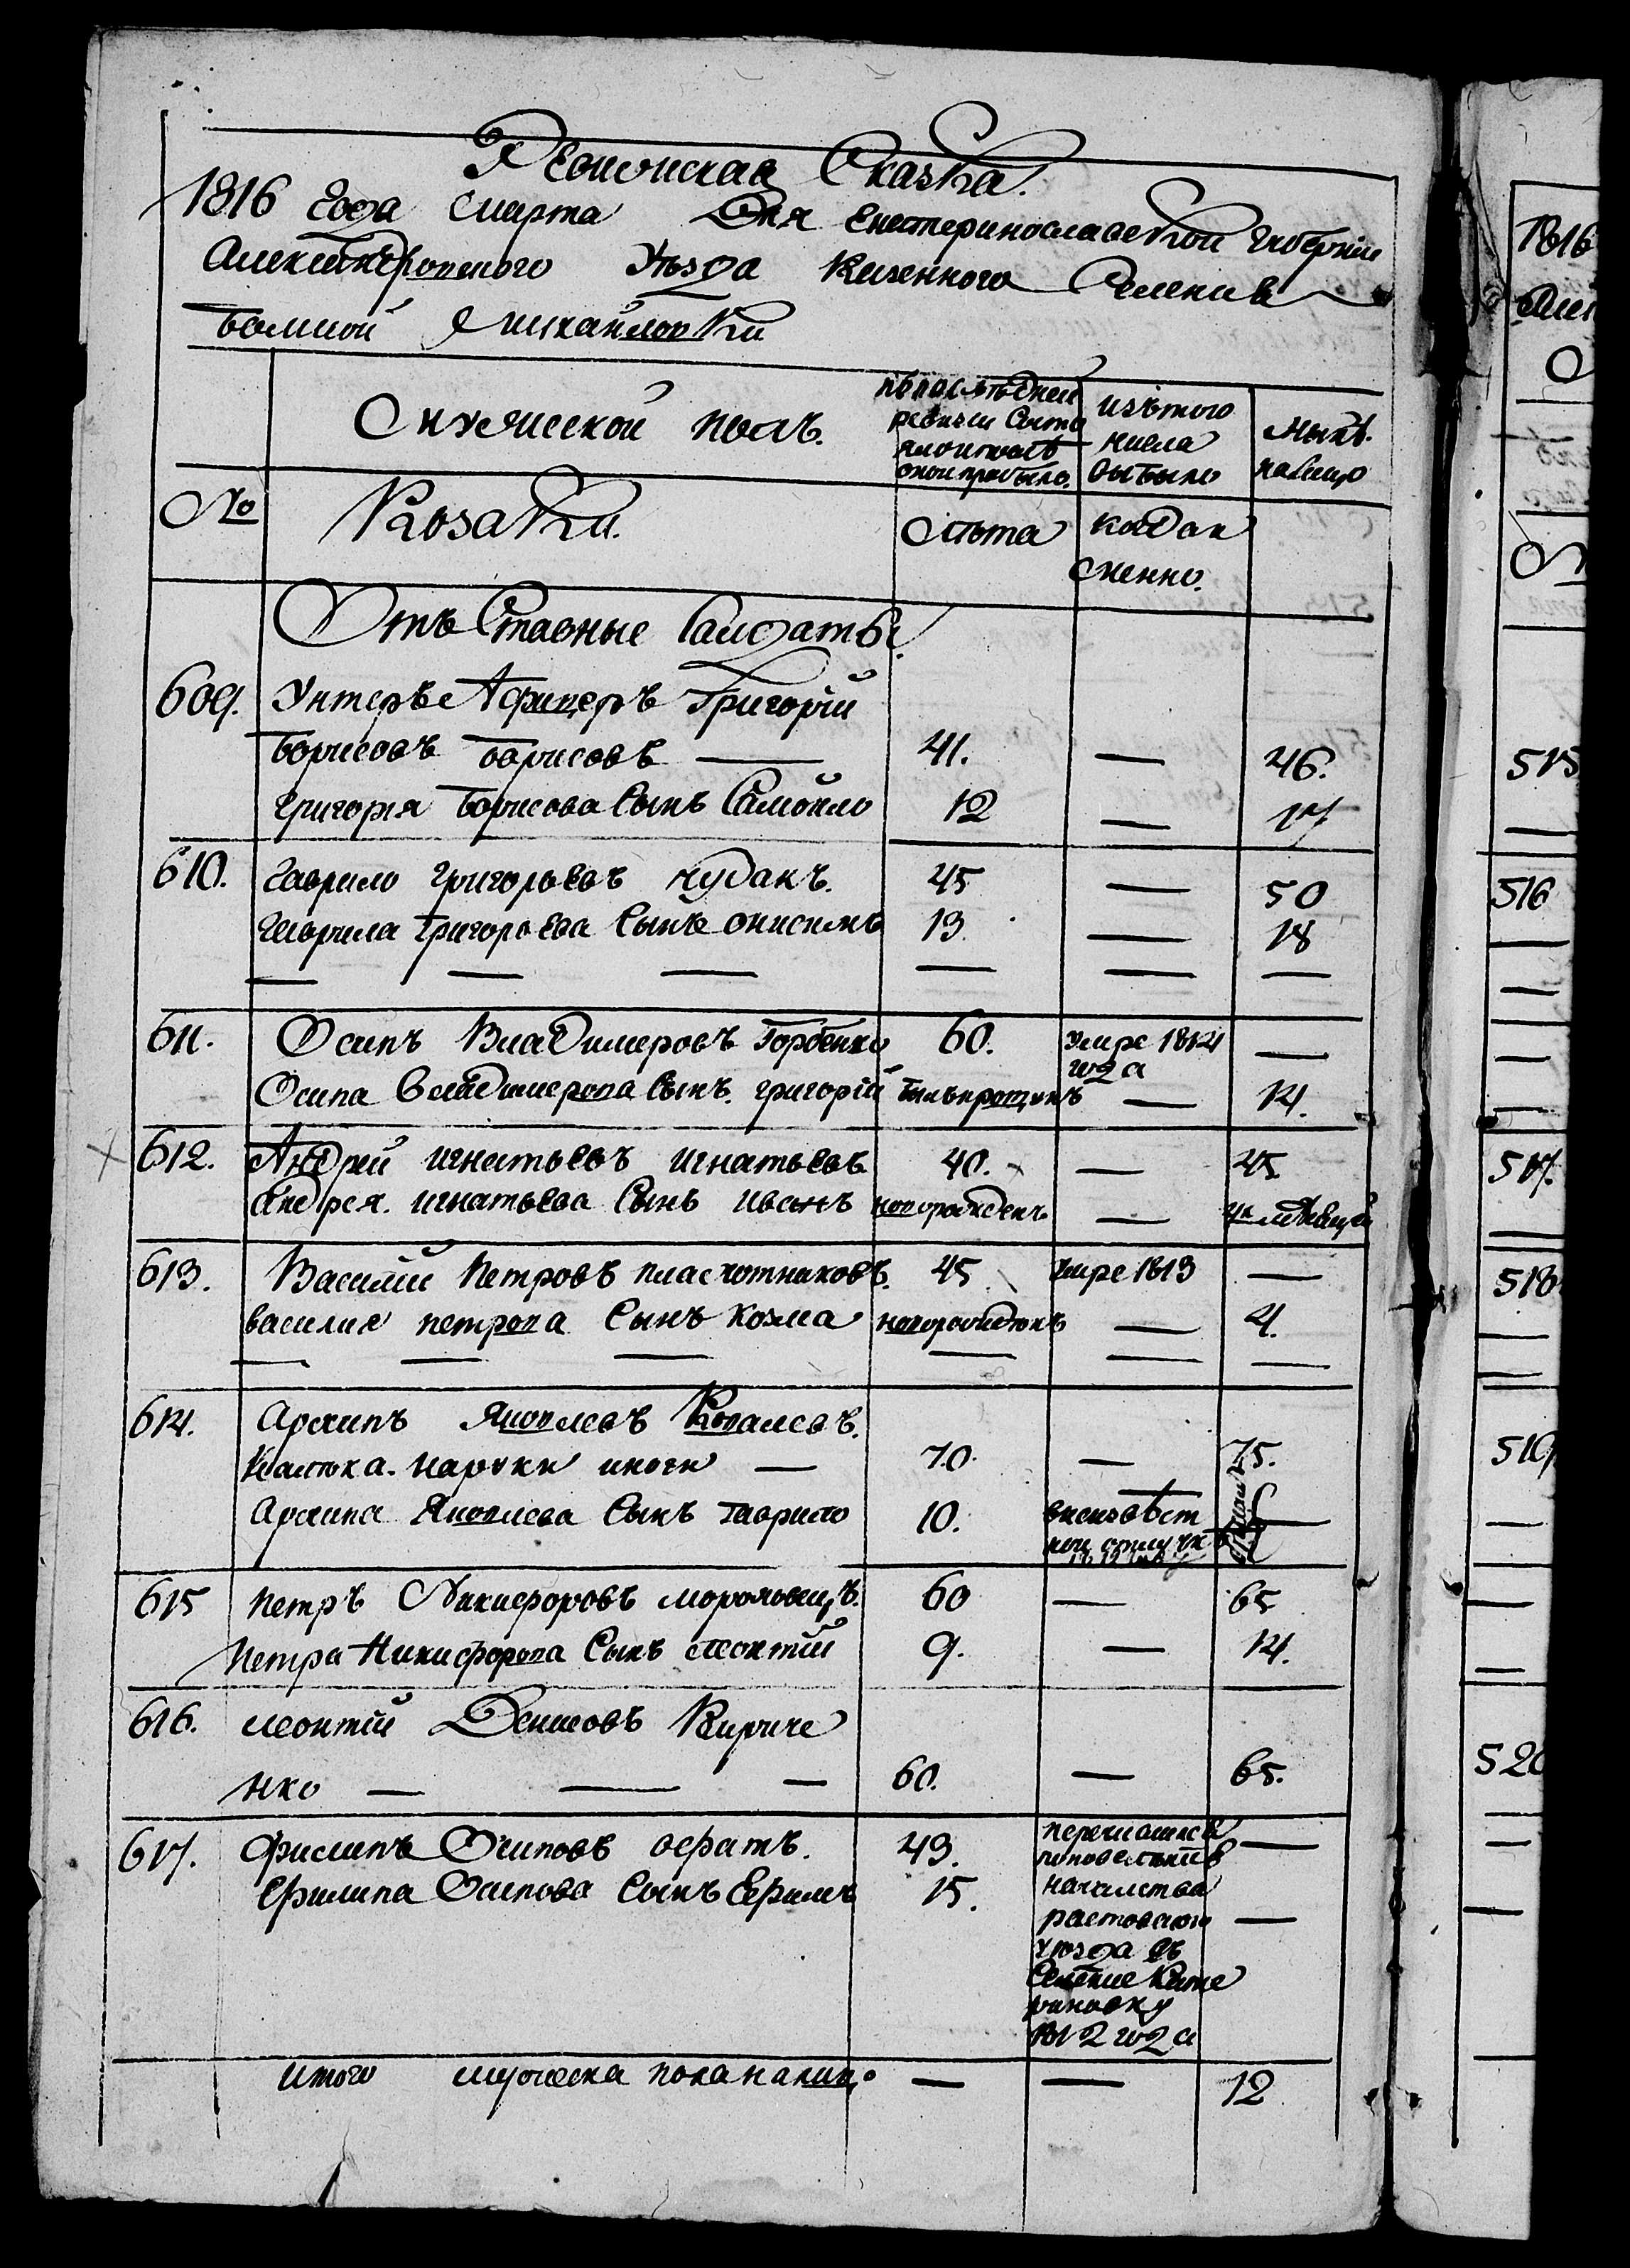 Ревизская Сказка.
1816 года Марта Дня Екатеринославской Губернии
Александровского Уезда Казенного Селения
Большой Михайловки
Мужеской полъ.
по последней ревизии Состо
яло и после оной прибыло.
изътого числа выбыло
Нынѣ налицо
№ Козаки. Лѣта когда именно.
Отъставные Салдаты.
609. Унтеръ Афицеръ Григорий
Борисовъ Борисовъ — 41. — 46.
Григория Борисова Сынъ Самойло 12 — 17
610. Гаврило Григорьевъ чудакъ. 45 — 50
Гаврила Григорьева Сынъ онисимъ 13. — 18
— — — — — —
611. Осипъ Владимеровъ Горбенко 60. Умре 1814 года —
Осипа Владимерова Сынъ. григорий — 14.
612. Андрей игнатьевъ игнатьевъ 40. — 45.
Андрея. игнатьева Сынъ иванъ новорожденъ —
613. Василий Петровъ 45 Умре 1813 —
василия петрова Сынъ козма новорожденъ — 4.
— — — — — —
614. Архипъ Яковлевъ Ковалевъ.
Калѣка. наруки иноги — 70. — 75.
Архипа Яковлева Сынъ Гаврило 10. внеизвѣст
ной отлучкѣ
615 петръ Никифоровъ 60 — 65
Петра Никифорова Сынъ Леонтий 9. — 14.
616. леонтий Денисовъ Кириче
нко — — — 60. — 65.
617. Филипъ Осиповъ 43. —
Филипа Осипова Сынъ Ефимъ 15. —
перечислены
поповелѣнию
началства
растовского
уезда въ
Селение Кате
риновку
1812 года
итого мужеска пола налицо — — 12
1816
515
—
516
—
—
—
—
517.
—
518
—
—
519
—
—
—
520
—
—